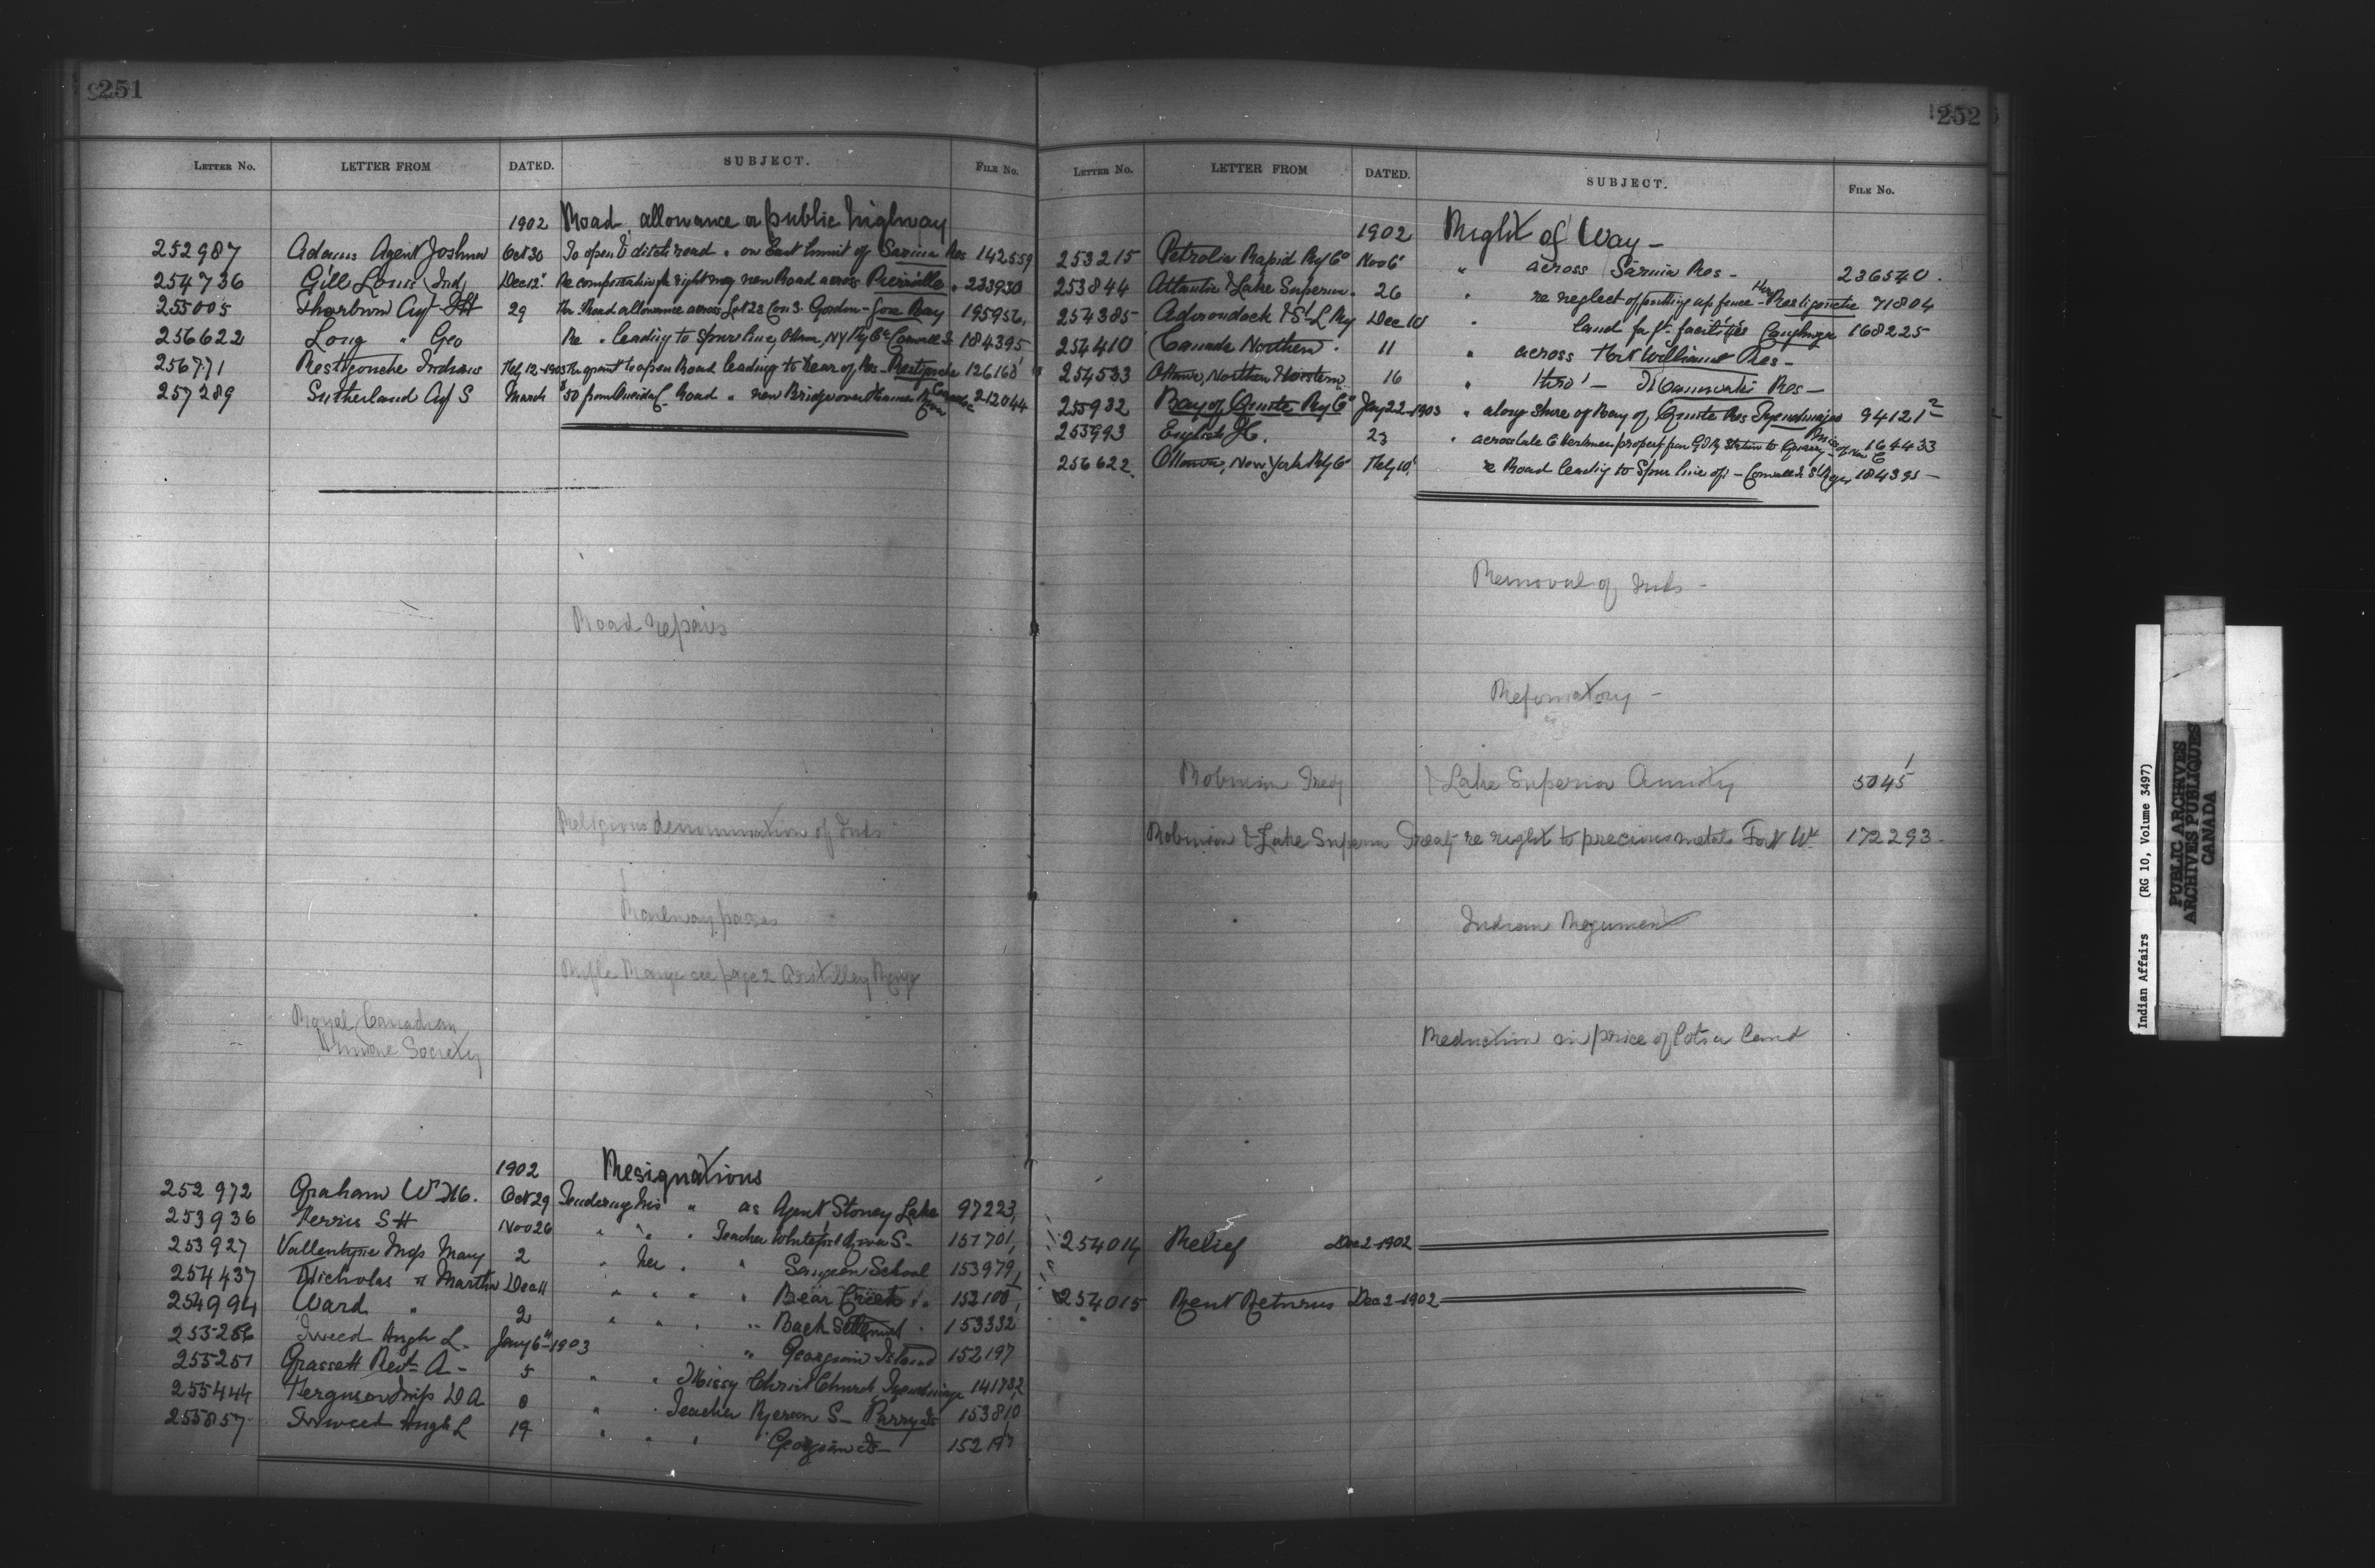 251
LETTER NO. LETTER FROM DATED. SUBJECT. FILE NO.
1902 Road allowance or public highway
252987 Adams Agent Joshua Oct 30 To open & ditch road " on East limit of Sarnia Res 142559
254736 Gill Louis Ind Dec 12 Re compensation for right way new Road across Pierreville " 233930
255005 Thorburn Agt 29 Road allowance across Lot 28 Con 3 Gordon - Gore Bay 195956
256622 Long " Geo Re " leading to Spur line, Ottawa, NY Ry Co Cornwall Is 184395
256771 Restigouche Indians Feb 12-1903 grant to open Road leading to Rear of Res - Restigouche 126168
257289 Sutherland Agt S March $50 from Oneida C. Road " new Bridge over Thames River Caradoc 212044
Road repairs
Religious denomination of Inds
Railway passes
Rifle Range see page 2 Artillery Range
Royal Canadian
Humane Society
1902 Resignations
252972 Graham Wm Oct 29 Tendering his " as Agent Stoney Lake 97223
253936 Ferris S H Nov 26 " " " Teacher Whitefish River S- 151701
253927 Vallentyne Miss Mary 2 " her " " Saugeen School 153979
254437 Nicholas " Martha Dec 11 " " " " Bear Creek " 152100
254994 Ward " 2 " " " " Back Settlement " 153332
255256 Tweed Hugh L. Jany 6th-1903 " Georgina Island 152197
255251 Grassett Revd A - 5 " " Missy Christ Church Tyendinaga 141782
255444 Ferguson Miss D A 8 " " Teacher Ryerson S- Parry Is 153810
255857 Tweed Hugh L 19 " " " Georgina Is- 152197
252
LETTER NO. LETTER FROM DATED. SUBJECT. FILE NO.
1902 Right of Way -
253215 Petrolia Rapid Ry Co Nov 6 " across Sarnia Res - 236540.
253844 Atlantic & Lake Superior. 26 " re neglect of putting up fence - Restigouche 71804
254385 Adirondack & St L Ry Dec 10 " land for facilities Caughnga 168225
254410 Canada Northern. 11 " across Fort William Res -
254533 Ottawa, Northern & Western 16 " thro' - Maniwaki Res -
255932 Bay of Quinte Ry Co Jany 22-1903 " along shore of Bay of Quinte Res Tyendinaga 94121-2
255993 English J C. 23 " across late property from Station to Quarry 164433
256622 Ottawa, New York Ry Co Feby 10 re Road leading to Spur line of - Cornwall Is St Regis 184395 -
Removal of Inds -
Reformatory -
Robinson Treaty Lake Superior Annuity 5045-1
Robinson & Lake Superior Treaty re right to precious metals Fort Wm 172293-
Indian Regiment
Reduction in price of lots or land
254014 Relief Dec 2-1902
254015 Rent Returns Dec 2-1902
Indian Affairs (RG 10, Volume 3497)
PUBLIC ARCHIVES
ARCHIVES PUBLIQUES
CANADA